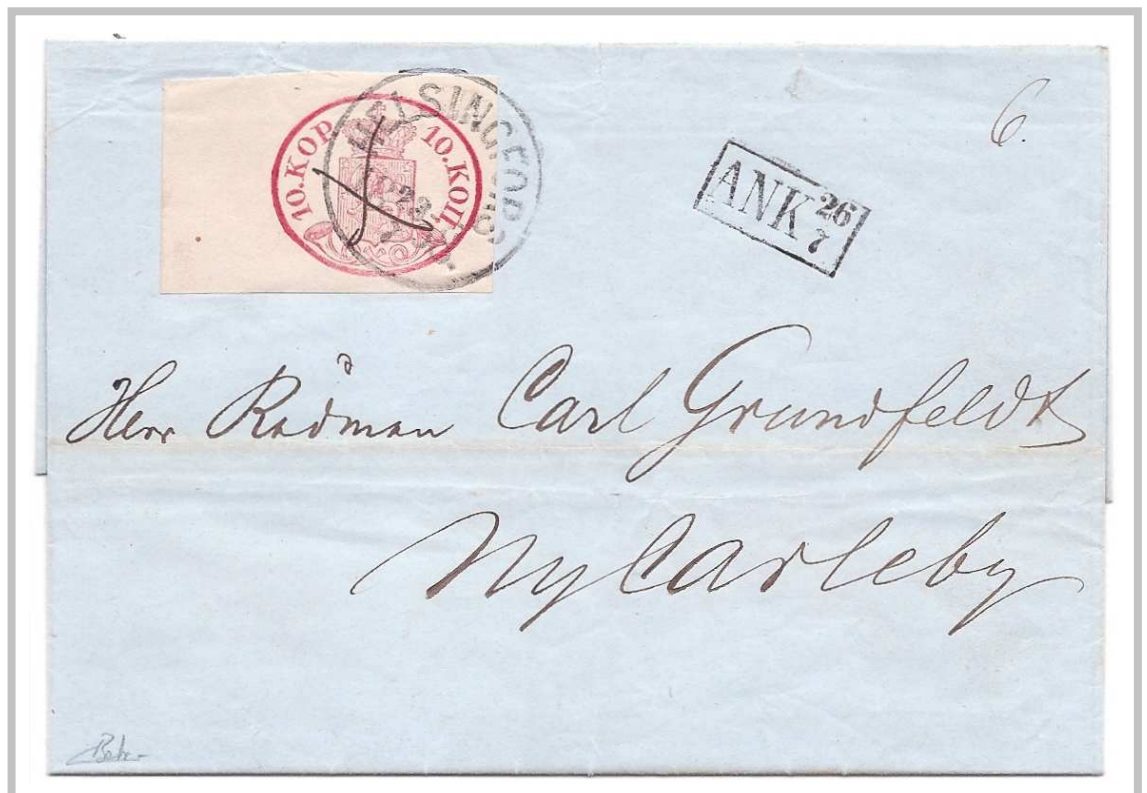 6.
10.KOP 10.КОП.
HELSINGFORS
23
ANK 26/7
Herr Rådman Carl Grundfeldt
NyCarleby